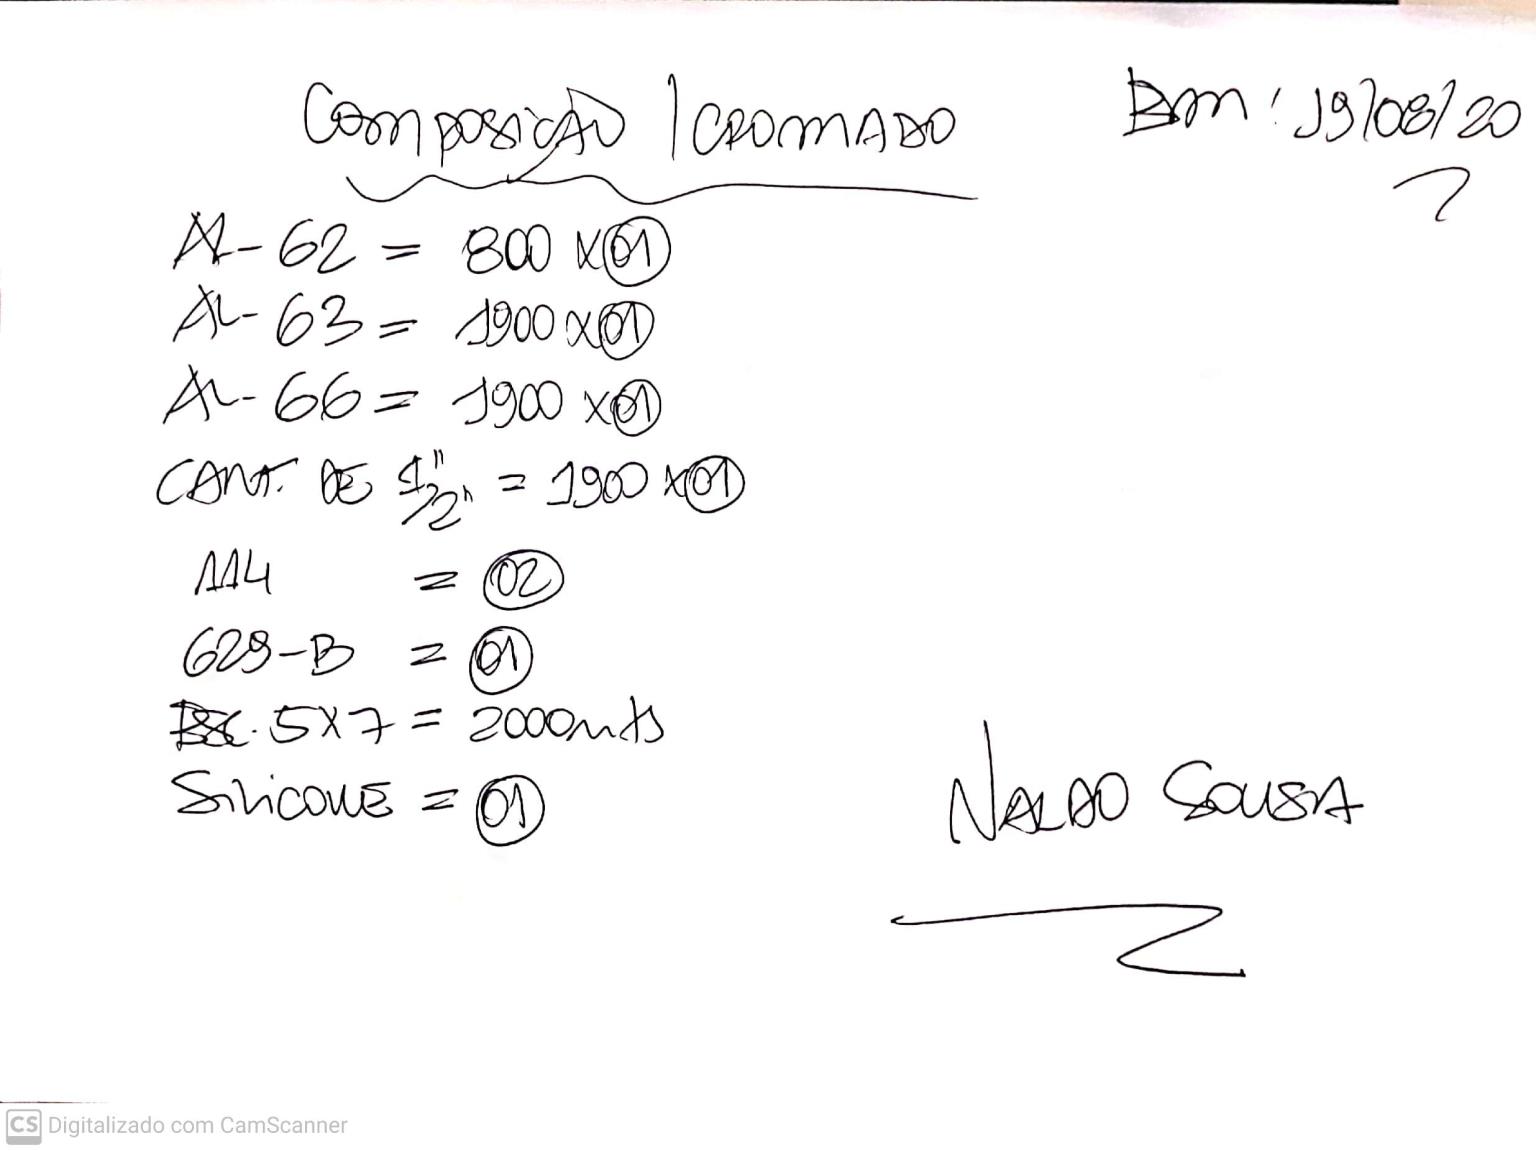 Composição / CROMADO
Bm: 19/08/20
AL-62 = 800 x 01
AL-63 = 1900 x 01
AL-66 = 1900 x 01
CANT. DE 1" 1/2" = 1900 x 01
114 = 02
629-B = 01
5x7 = 2000mts
Silicone = 01
NALDO SOUSA
CS Digitalizado com CamScanner